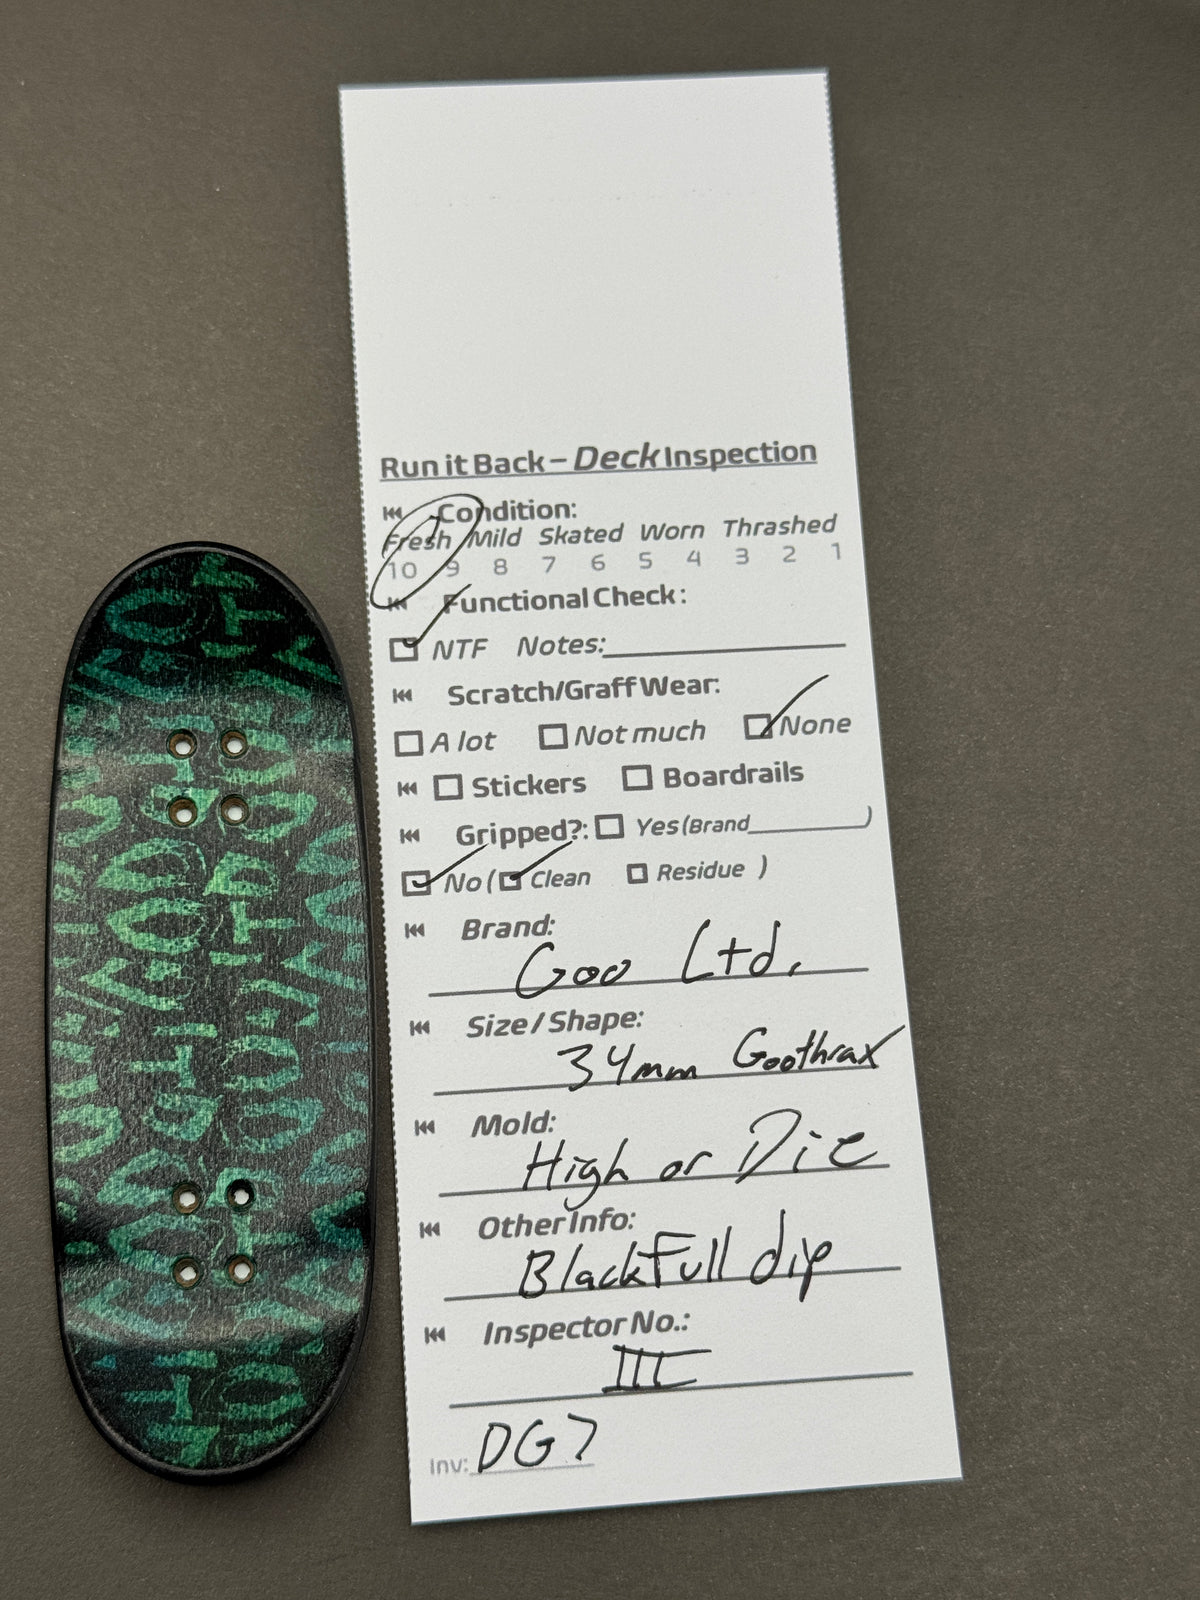 Run it Back – Deck Inspection
Condition:
Fresh Mild Skated Worn Thrashed
10 9 8 7 6 5 4 3 2 1
Functional Check:
NTF Notes:
Scratch/Graff Wear:
A lot Not much None
Stickers Boardrails
Gripped?: Yes (Brand )
No ( Clean Residue )
Brand:
Goo Ltd.
Size / Shape:
34mm Goothrax
Mold:
High or Die
Other Info:
Black Full dip
Inspector No.:
III
Inv: DG7